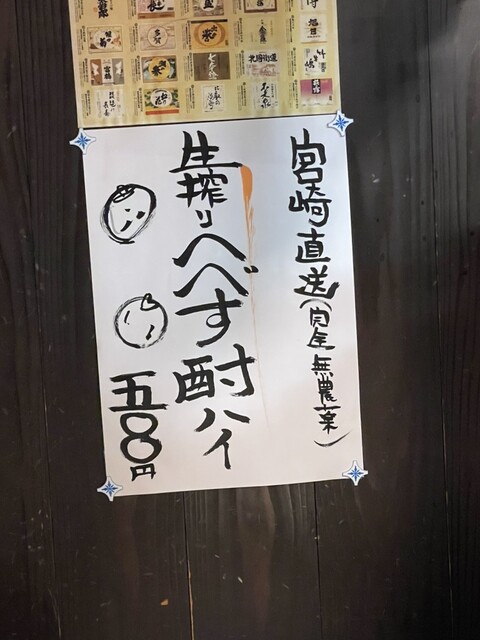 宮崎直送(完全無農薬)
生搾りへべす酎ハイ
五〇〇円